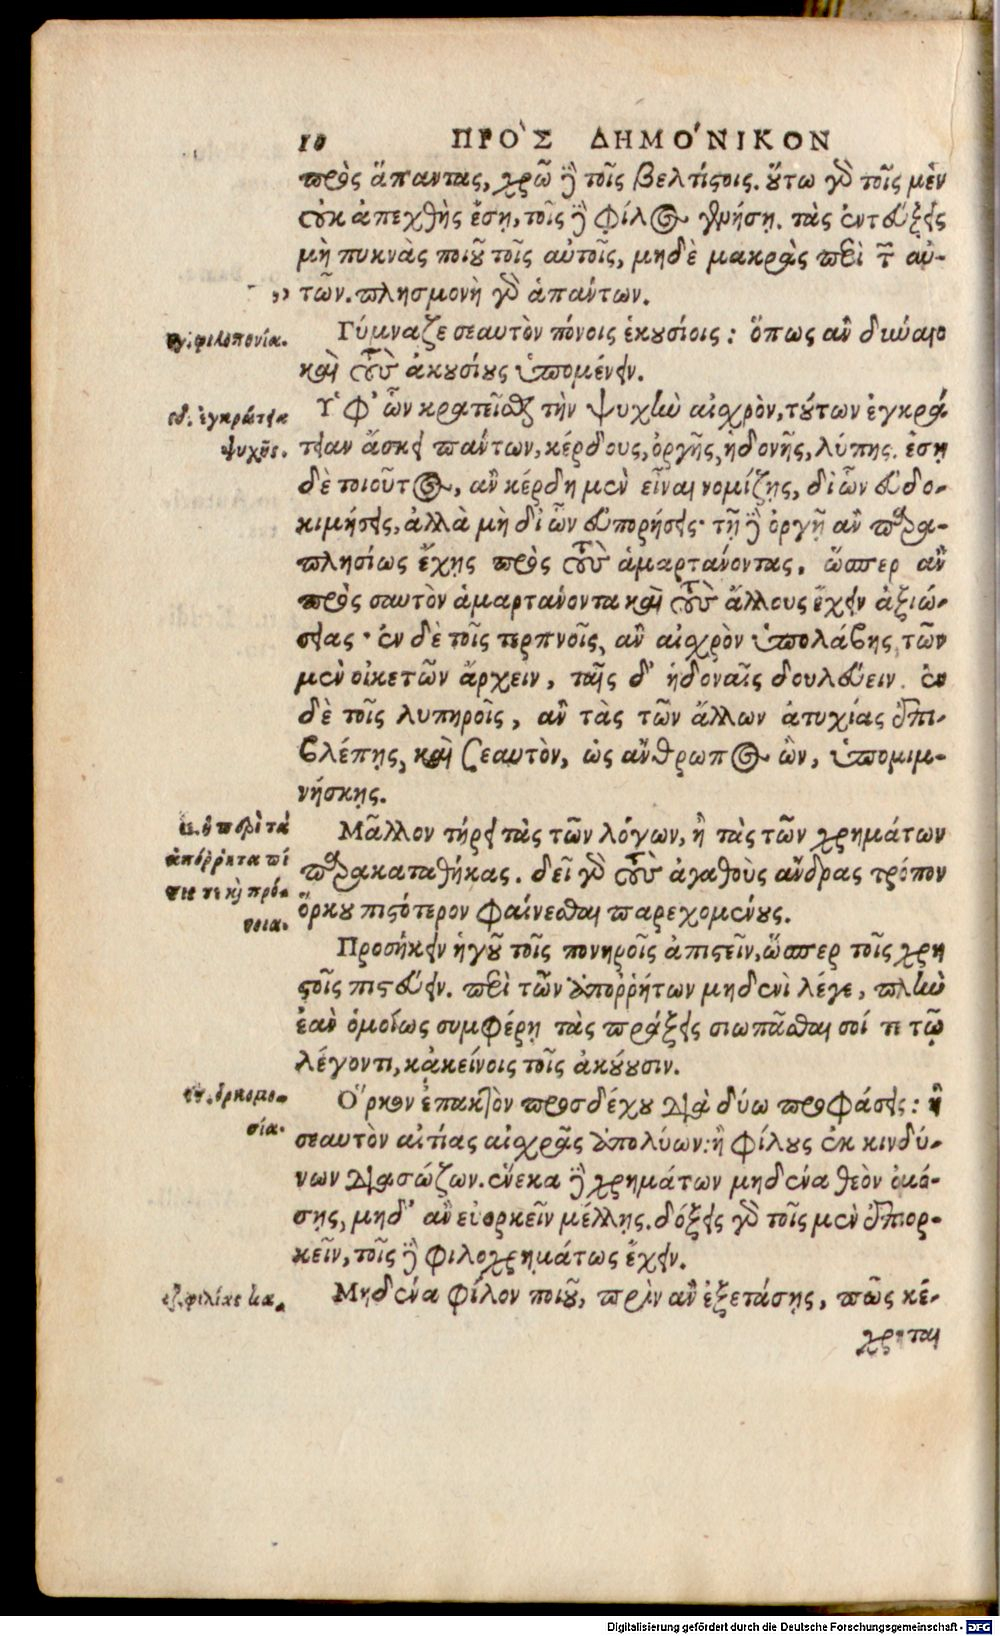 10 ΠΡΟ`Σ ΔΗΜΟ´ΝΙΚΟΝ
πρὸς ἅπαντας, χρῶ δὲ τοῖς βελτίςοις. ὕτω γὸ τοῖς μὲν
οὐκ ἀπεχθὴς ἔσῃ, τοῖς δὲ φίλος γενήσῃ. τὰς ἐντεύξεις
μὴ πυκνὰς ποιοῦ τοῖς αὐτοῖς, μηδὲ μακρὰς περὶ τῶν αὐ-
τῶν. πλησμονὴ γὸ ἁπάντων.
ξγ. φιλοπονία.
Γύμναζε σεαυτὸν πόνοις ἑκουσίοις: ὅπως ἂν δύναιο
καὶ τοὺς ἀκουσίους ὑπομένειν.
ξδ. ἐγκράτεια
ψυχῆς.
Υ῾φ’ ὧν κρατεῖσθαι τὴν ψυχὴν αἰσχρὸν, τούτων ἐγκρά
τειαν ἄσκει πάντων, κέρδους, ὀργῆς, ἡδονῆς, λύπης. ἔσῃ
δὲ τοιοῦτος, ἂν κέρδη μὲν εἶναι νομίζῃς, δι’ ὧν εὐδο-
κιμήσεις, ἀλλὰ μὴ δι’ ὧν εὐπορήσεις· τῇ δὲ ὀργῇ ἂν παρα-
πλησίως ἔχῃς πρὸς τοὺς ἁμαρτάνοντας, ὥσπερ ἂν
πρὸς σαυτὸν ἁμαρτάνοντα καὶ τοὺς ἄλλους ἔχειν ἀξιώ-
σειας · ἐν δὲ τοῖς τερπνοῖς, ἂν αἰσχρὸν ὑπολάβῃς, τῶν
μὲν οἰκετῶν ἄρχειν, ταῖς δ’ ἡδοναῖς δουλεύειν. ἐν
δὲ τοῖς λυπηροῖς, ἂν τὰς τῶν ἄλλων ἀτυχίας ἐπι-
βλέπῃς, καὶ σεαυτὸν, ὡς ἄνθρωπος ὢν, ὑπομιμ-
νήσκῃς.
ξε. ἡ περὶ τὰ
ἀπόῤῥητα πί
στις τε καὶ πρό-
νοια.
Μᾶλλον τήρει τὰς τῶν λόγων, ἢ τὰς τῶν χρημάτων
παρακαταθήκας. δεῖ γὸ τοὺς ἀγαθοὺς ἄνδρας τρόπον
ὅρκου πιςότερον φαίνεσθαι παρεχομένους.
Προσήκειν ἡγοῦ τοῖς πονηροῖς ἀπιςεῖν, ὥσπερ τοῖς χρη
ςοῖς πιστεύειν. περὶ τῶν ἀποῤῥήτων μηδενὶ λέγε, πλὴν
ἐὰν ὁμοίως συμφέρῃ τὰς πράξεις σιωπᾶσθαι σοί τε τῷ
λέγοντι, κἀκείνοις τοῖς ἀκούουσιν.
ξϛ. ὁρκωμο-
σία.
Ο῞ρκον ἐπακτὸν προσδέχου διὰ δύω προφάσεις: ἢ
σεαυτὸν αἰτίας αἰσχρᾶς ἀπολύων: ἢ φίλους ἐκ κινδύ-
νων διασώζων. ἕνεκα δὲ χρημάτων μηδένα θεὸν ὀμό-
σῃς, μηδ’ ἂν εὐορκεῖν μέλλῃς. δόξεις γὸ τοῖς μὲν ἐπιορ-
κεῖν, τοῖς δὲ φιλοχρημάτως ἔχειν.
ξζ. φιλίας
Μηδένα φίλον ποιοῦ, πρὶν ἂν ἐξετάσῃς, πῶς κέ-
χρηται
Digitalisierung gefördert durch die Deutsche Forschungsgemeinschaft - DFG